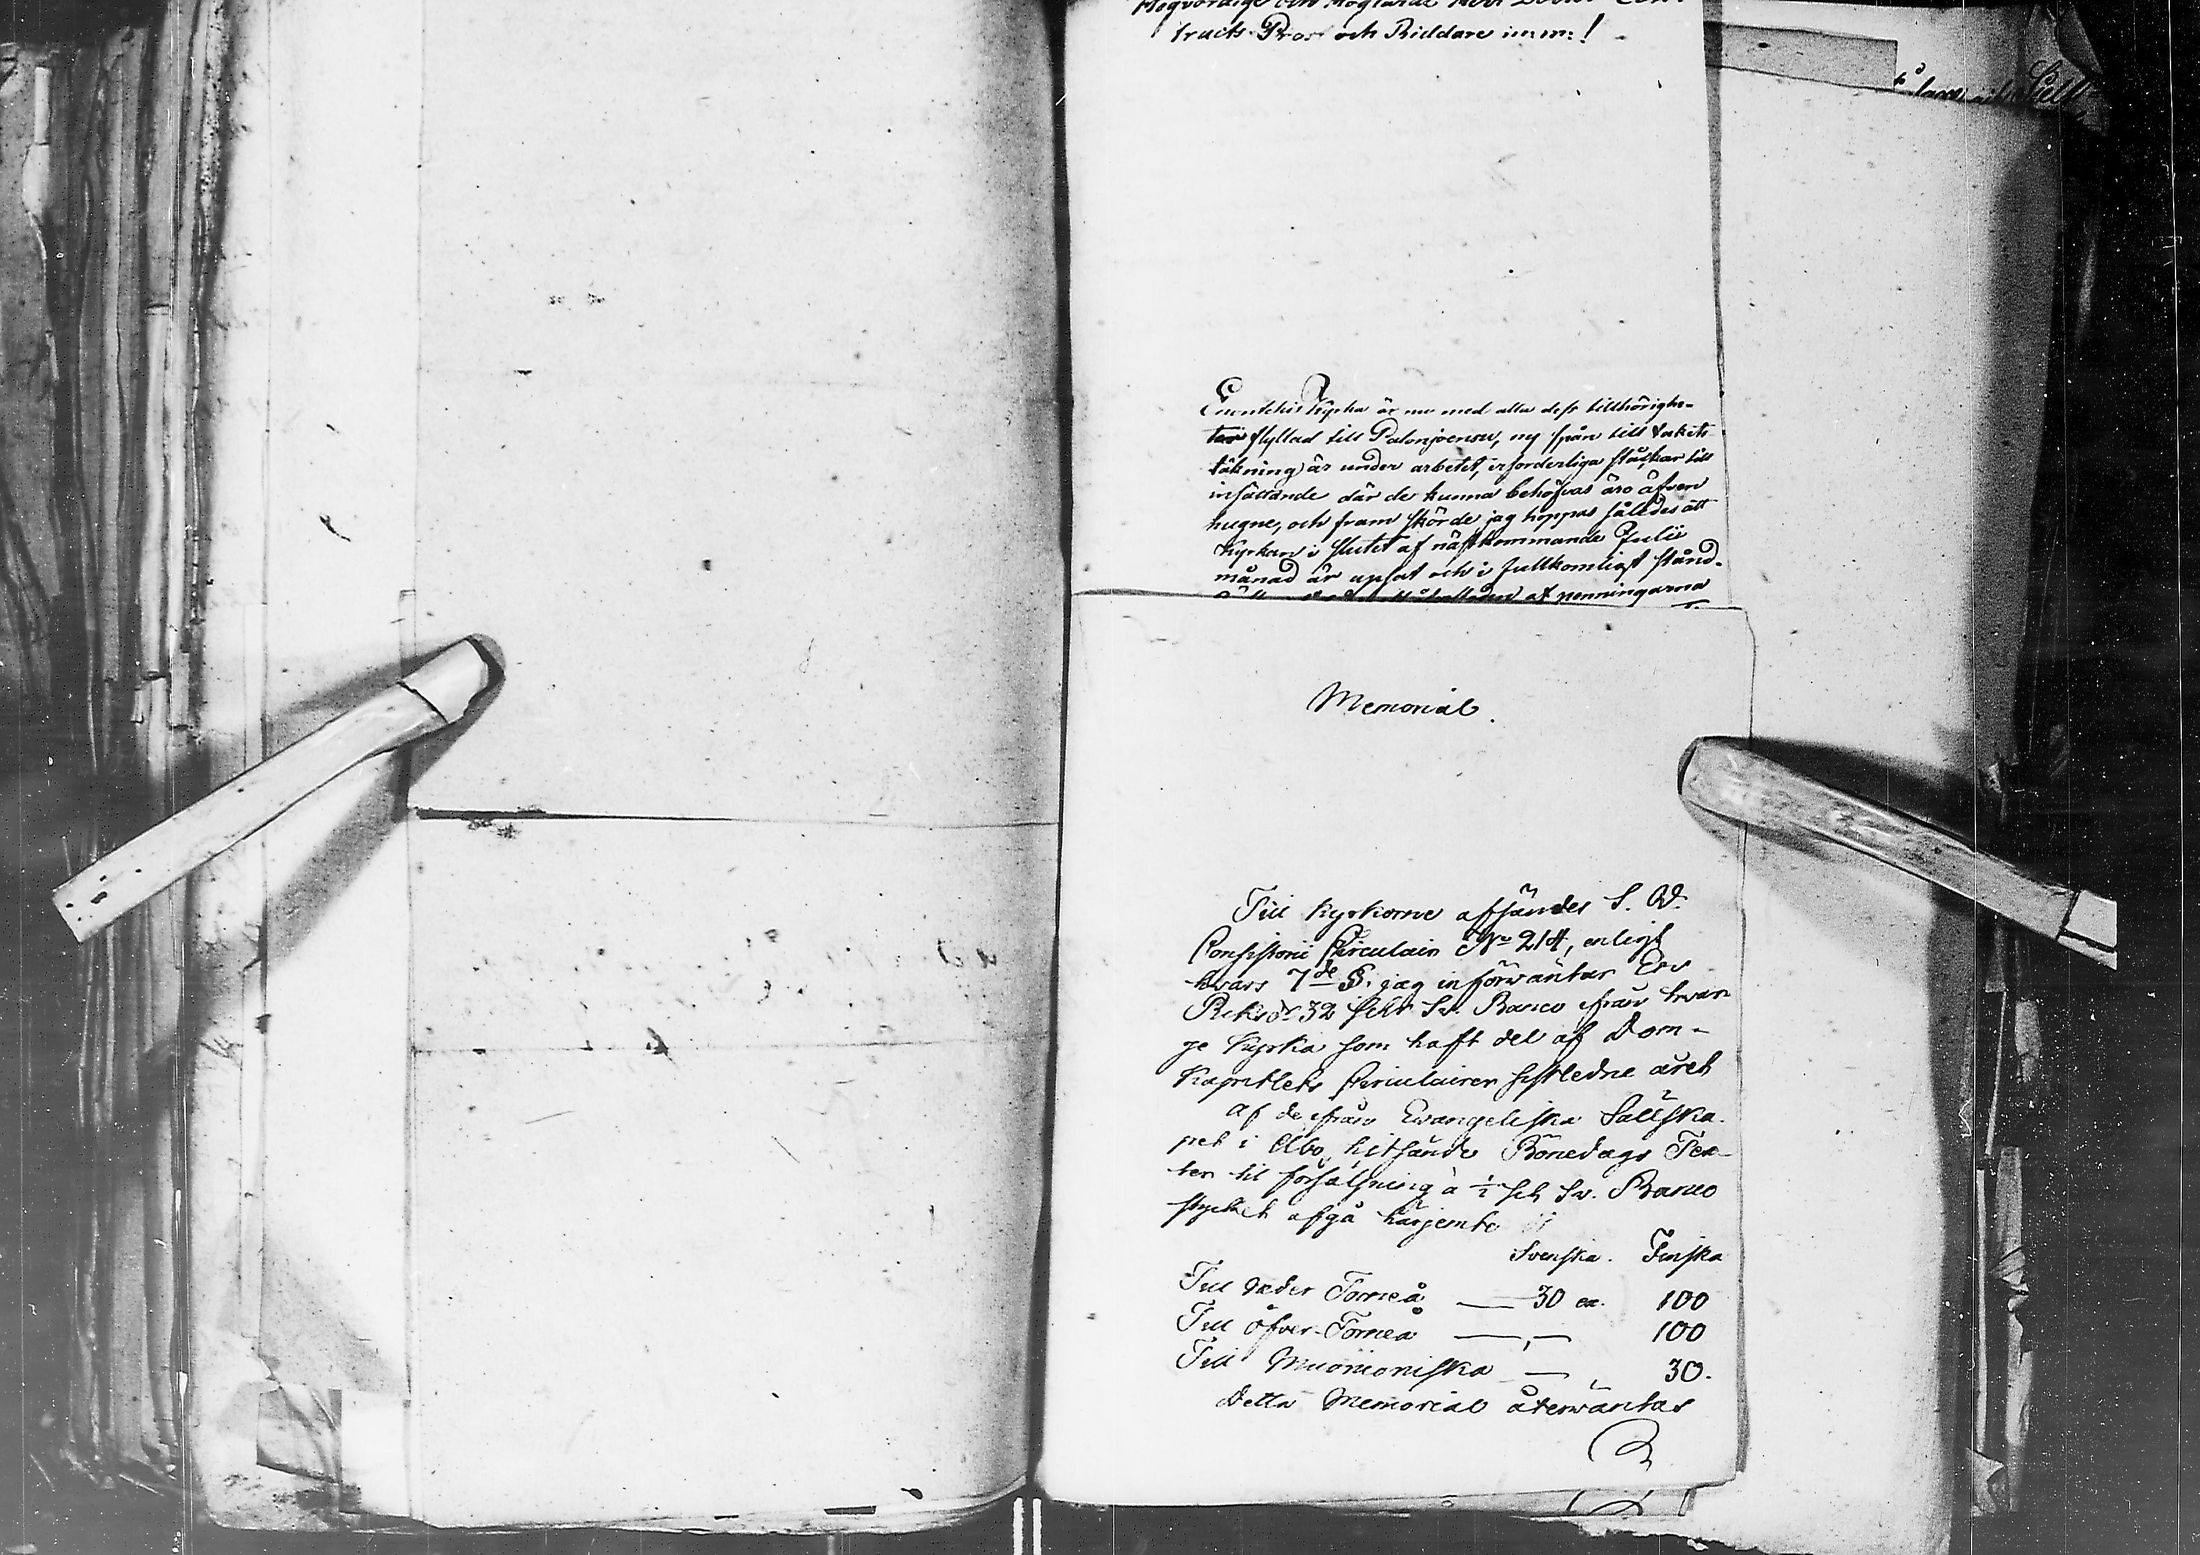 Högvördige och Höglärde Herr Doctor Con-
tracts Prost och Riddare m:m:!
Enontekis Kyrka är nu med alla dess tillhörighe-
ter flyttad till Palonjoensu, ny spån till takets
täkning är under arbetet, erforderliga ståckar till
insättande där de kunna behöfvas äro äfven
hugne, och fram skörde jag hoppas således att
Kyrkan i slutet af nästkommande Julii
månad är upsat och i fullkomligt stånd.
af penningarna
Memorial.
Till Kyrkorne afsändes S. V.
Consistorii Circulair No 214, enligt
hvars 7de §. jag införwäntar En
Riksdr 32 sch Sv. Banco ifrån hvar
ge Kyrka som haft del af Dom-
Kapitlets Circulairer sistledne året
af de ifrån Evangeliska Sällska-
pet i Åbo hitsände Bönedags Tex-
ter til försälgning à ½ sch Sv. Banco
stycket afgå härjemte
Svenska. Finska
Till Neder Torneå — 30 ex. 100
Till Öfver-Torneå — , — 100
Till Muonioniska — , 30.
Detta Memorial återwäntas